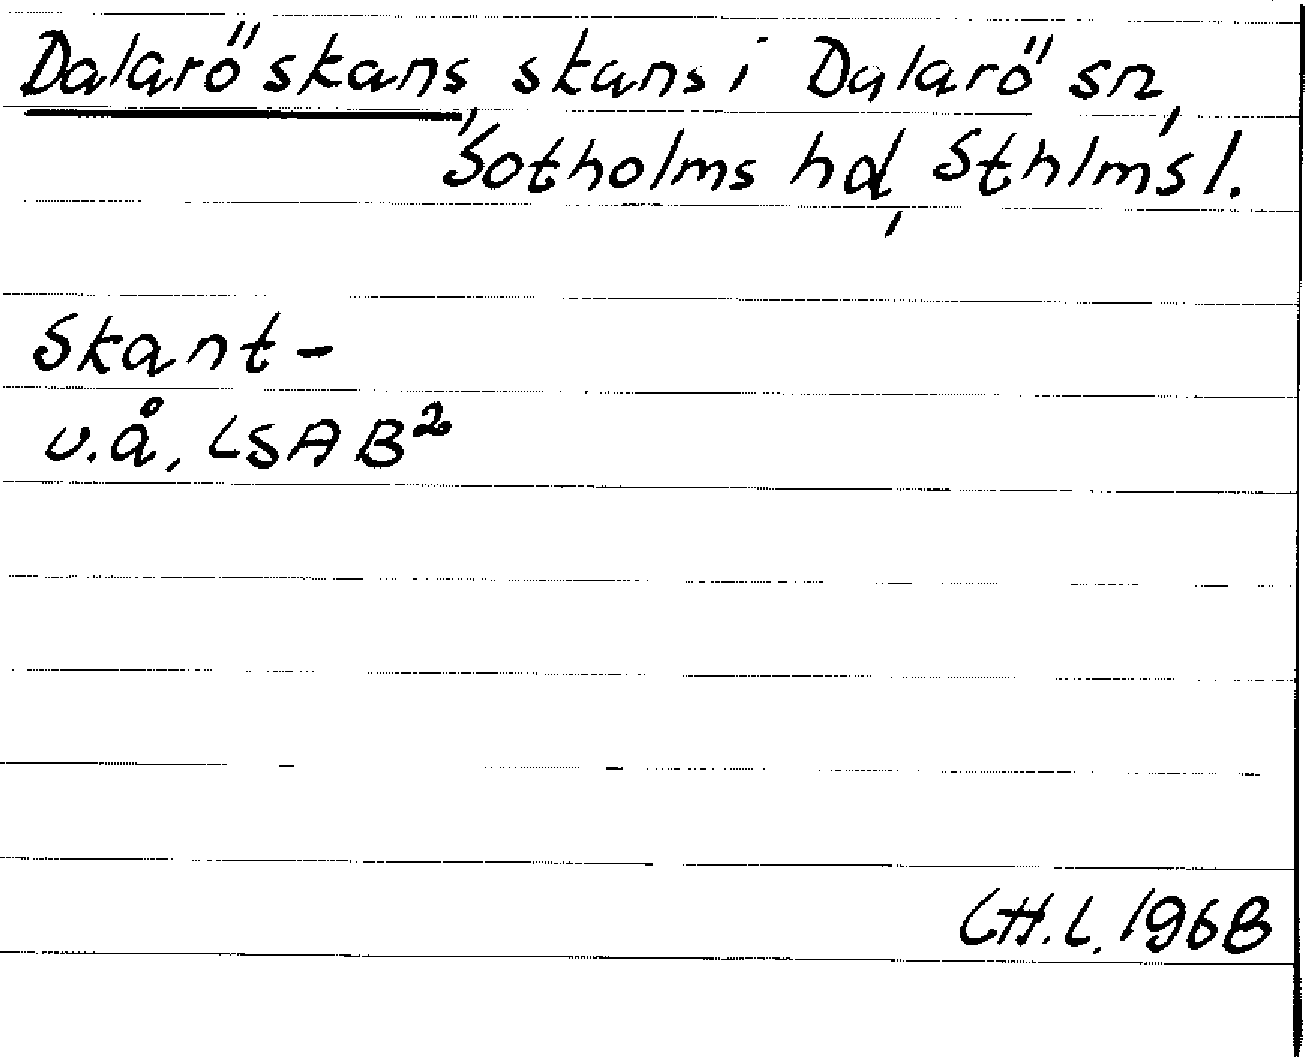 Dalarö skans, skans i Dalarö sn,
Sotholms hd, Sthlms l.
Skant-
u.å, LSA B²
CH.L. 1968